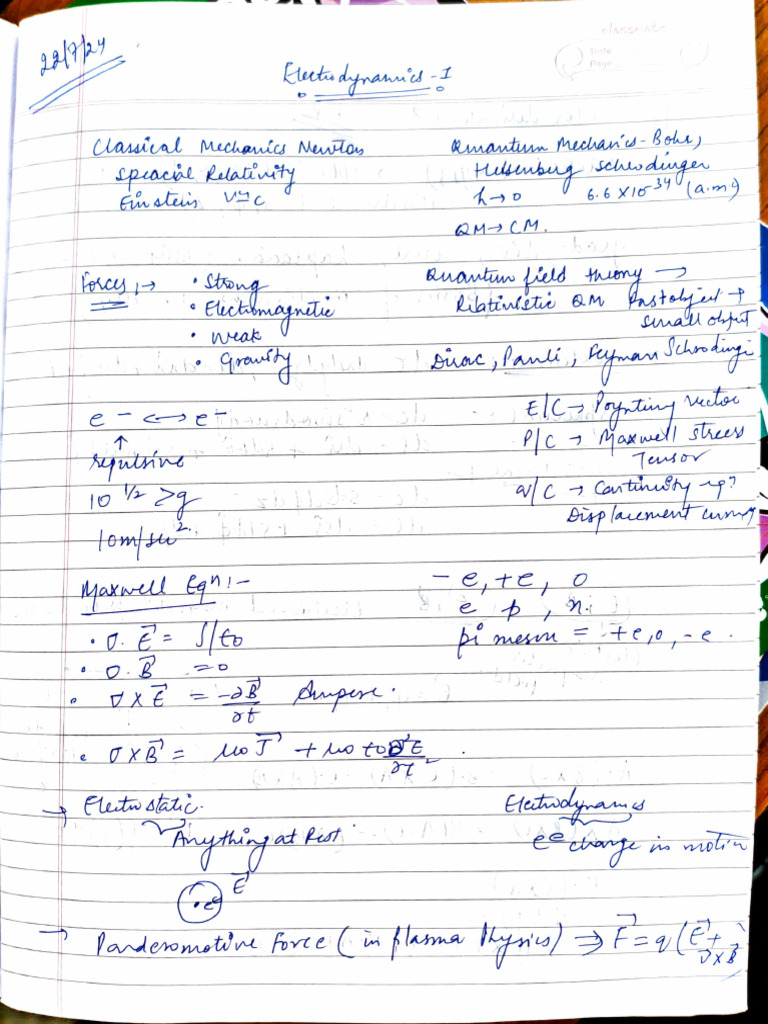 classmate
Date
Page
22/7/24
Electrodynamics - I
Classical Mechanics Newton
Speacial Relativity
Einstein V≃c
Quantum Mechanics - Bohr,
Heisenburg Schrodinger
h→0 6.6 X 10⁻³⁴ (a.m)
QM → CM.
Forces :→ • Strong
• Electromagnetic
• Weak
• Gravity
Quantum field theory →
Relativistic QM Fast object →
small object
Dirac, Pauli, Feyman Schrodinger
e⁻ ↔ e⁻
↑
repulsive
10^1/2 > g
10m/sec².
E/C → Poynting vector
P/C → Maxwell stress
Tensor
q/C → Continuity eqⁿ
Displacement current
Maxwell Eqⁿ :-
• ∇. E⃗ = ρ/ε0
• ∇. B⃗ = 0
• ∇ X E⃗ = -∂B⃗/∂t Ampere.
• ∇ X B⃗ = μ0 J⃗ + μ0 ε0 ∂²E/∂t² .
- e, +e, 0
e p, n.
pi meson = +e, 0, -e.
→ Electrostatic.
Anything at Rest.
• e E⃗
Electrodynamics
charge in motion
→ Panderomotive Force (in plasma Physics) ⇒ F⃗ = q (E⃗ + v X B⃗